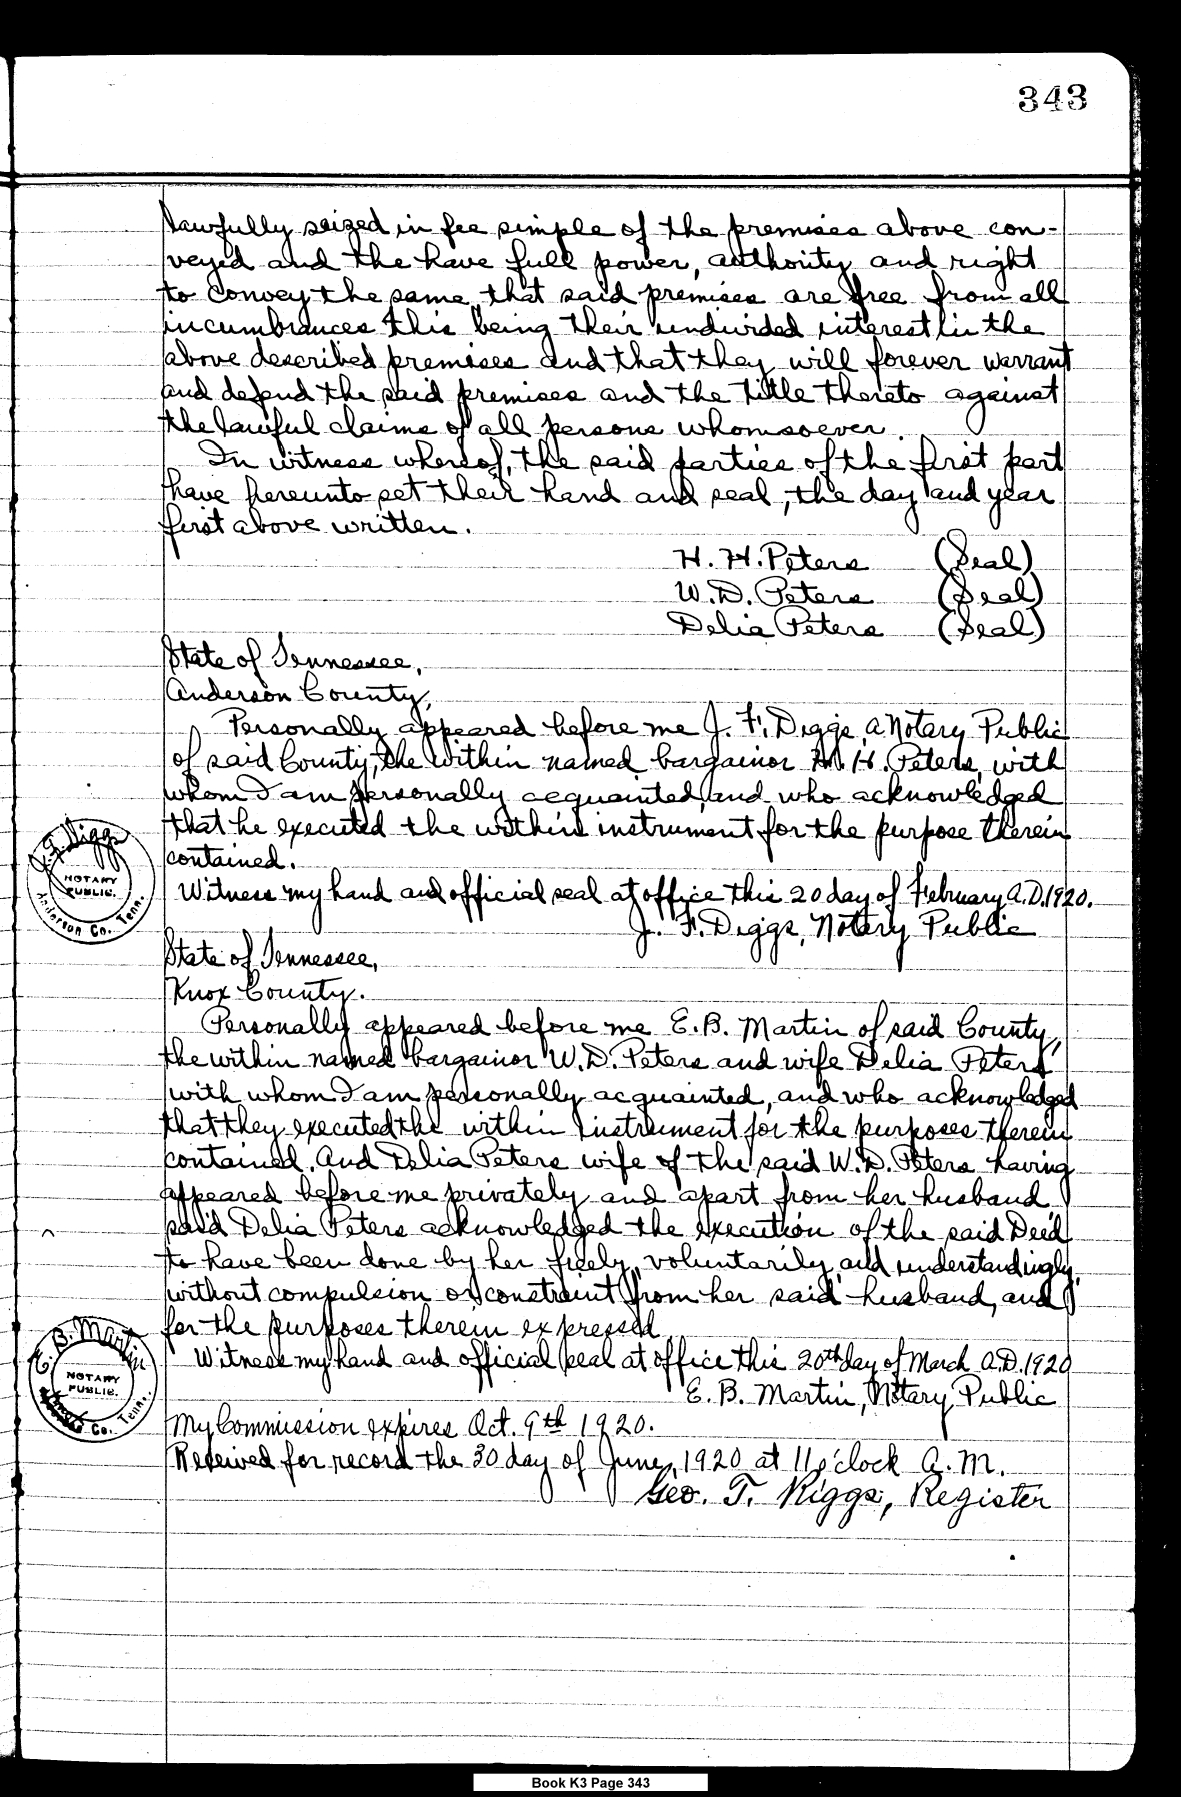 343
lawfully seized in fee simple of the premises above con-
veyed and the have full power, authority and right
to convey the same, that said premises are free from all
incumbrances this being their undivided interest in the
above described premises and that they will forever warrant
and defend the said premises and the title thereto against
the lawful claims of all persons whomsoever.
In witness whereof, the said parties of the first part
have hereunto set their hand and seal, the day and year
first above written.
H. H. Peters (Seal)
W. D. Peters (Seal)
Delia Peters (Seal)
State of Tennessee,
Anderson County,
Personally appeared before me J. F. Diggs, a Notary Public
of said County, the within named bargainor H. H. Peters, with
whom I am personally acquainted, and who acknowledged
that he executed the within instrument for the purpose therein
contained.
J. F. Diggs
NOTARY
PUBLIC.
Anderson Co. Tenn.
Witness my hand and official seal at office this 20 day of February A.D. 1920.
J. F. Diggs, Notary Public
State of Tennessee,
Knox County.
Personally appeared before me E. B. Martin of said County,
the within named bargainor W. D. Peters and wife Delia Peters
with whom I am personally acquainted, and who acknowledged
that they executed the within instrument for the purposes therein
contained. And Delia Peters wife of the said W. D. Peters having
appeared before me privately and apart from her husband,
said Delia Peters acknowledged the execution of the said Deed
to have been done by her freely, voluntarily, and understandingly,
without compulsion or constraint from her said husband, and
for the purposes therein expressed.
E. B. Martin
NOTARY
PUBLIC.
Co. Tenn.
Witness my hand and official seal at office this 20th day of March A.D. 1920
E. B. Martin, Notary Public
My Commission expires Oct. 9th 1920.
Received for record the 30 day of June, 1920 at 11 o'clock A. M.
Geo. T. Riggs, Register
Book K3 Page 343